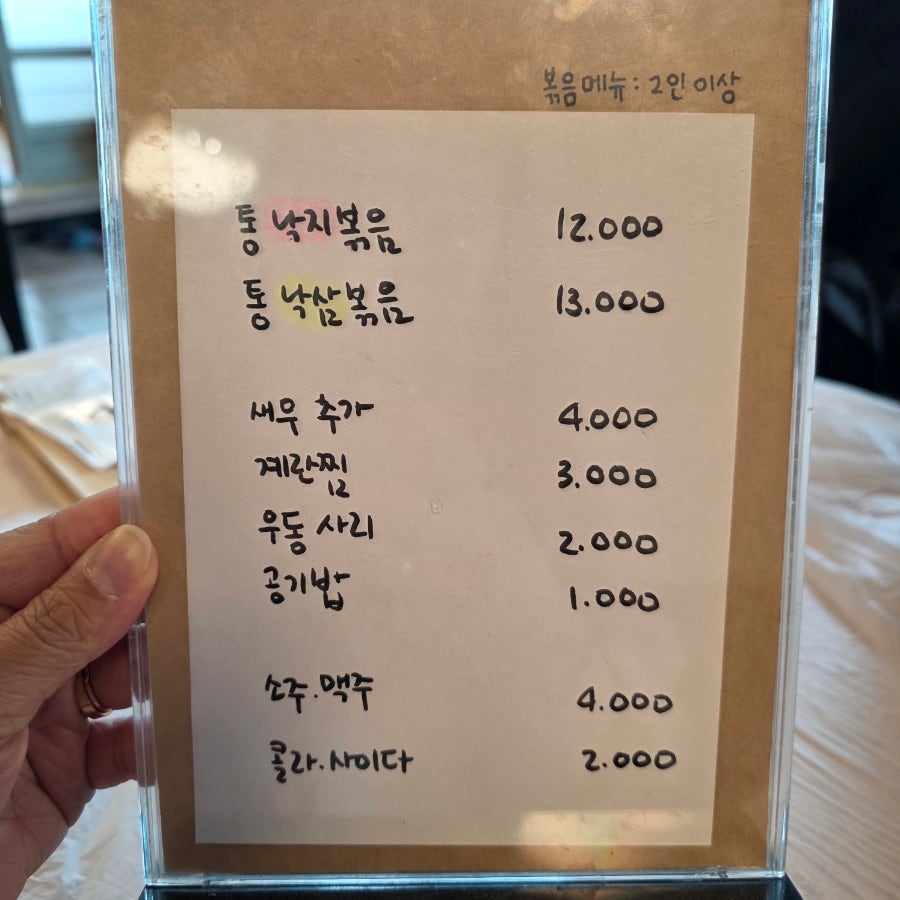 볶음메뉴: 2인 이상
통낙지볶음 12.000
통낙삼볶음 13.000
새우 추가 4.000
계란찜 3.000
우동 사리 2.000
공기밥 1.000
소주.맥주 4.000
콜라.사이다 2.000